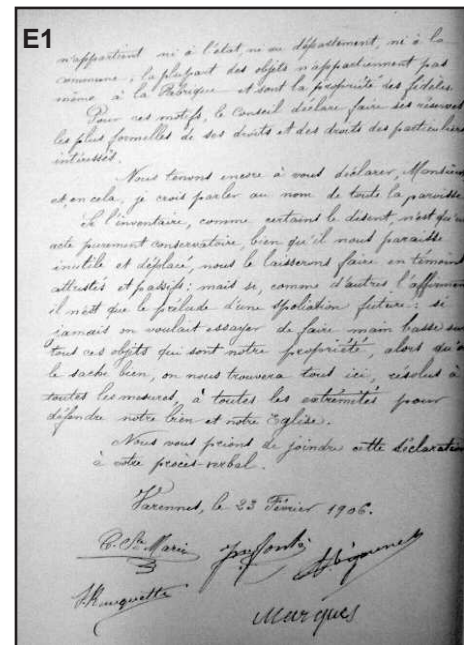 E1
n'appartient ni à l'état, ni au département, ni à la
commune ; la plupart des objets n'appartiennent pas
même à la Fabrique et sont la propriété des fidèles
Pour ces motifs, le Conseil déclare faire ses réserves
les plus formelles de ses droits et des droits des particuliers
intéressés.
Nous tenons encore à vous déclarer, Monsieur
et, en cela, je crois parler au nom de toute la paroisse
Si l'inventaire, comme certains le disent, n'est qu'un
acte purement conservatoire, bien qu'il nous paraisse
inutile et déplacé, nous le laisserons faire en témoins
attristés et passifs : mais si, comme d'autres l'affirment
il n'est que le prélude d'une spoliation future : si
jamais on voulait essayer de faire main basse sur
tous ces objets qui sont notre propriété, alors qu'on
le sache bien, on nous trouvera tous ici, résolus à
toutes les mesures, à toutes les extrémités pour
défendre notre bien et notre Eglise.
Nous vous prions de joindre cette déclaration
à votre procès-verbal.
Varennes, le 23 Février 1906.
C. Ste Marie
J. Rouquette
Marques